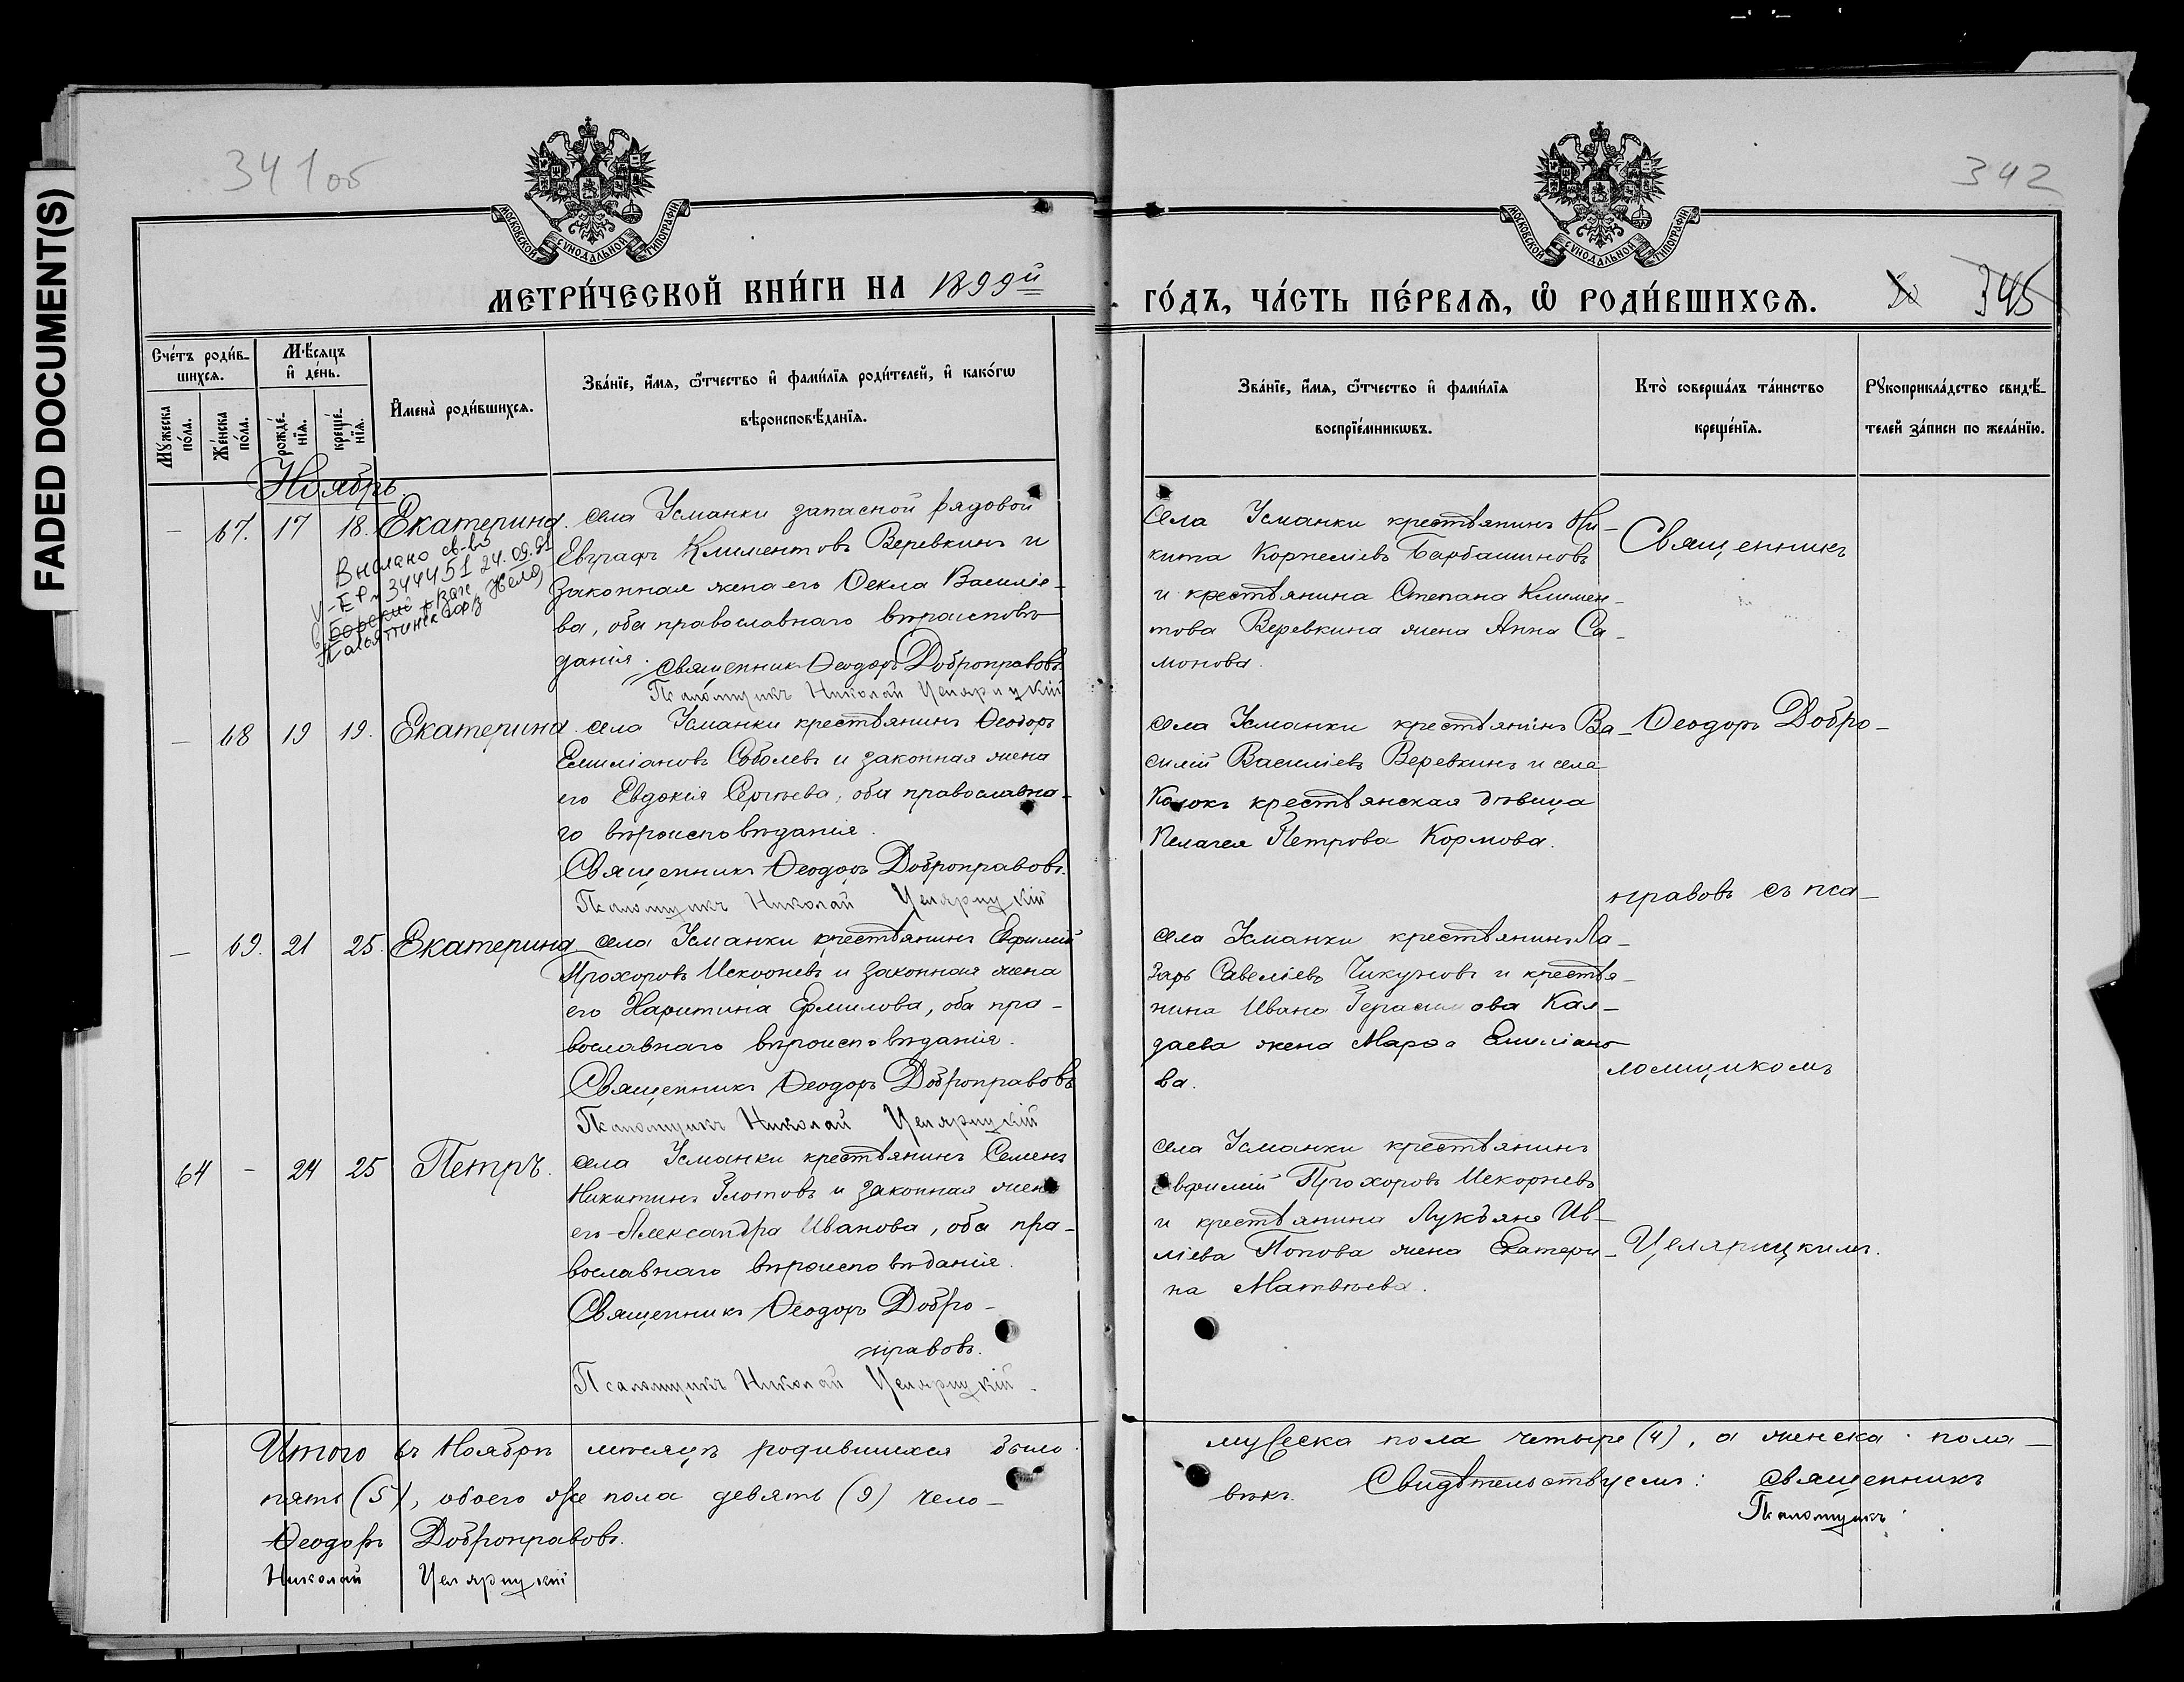 FADED DOCUMENT(S)
341 об
342
МОСКОВСКОЙ СѴНОДАЛЬНОЙ ТИПОГРАФІИ
МОСКОВСКОЙ СѴНОДАЛЬНОЙ ТИПОГРАФІИ
МЕТРИ́ЧЕСКОЙ КНИ́ГИ НА 1899й
ГО́ДЪ, ЧА́СТЬ ПЕ́РВАѦ, Ѿ РОДИ́ВШИХСѦ.
345
Сче́тъ роди́в-
шихсѧ.
Мѣ́сѧцъ
и҆ де́нь.
Мꙋ́жеска по́ла.
Же́нска по́ла.
рожде́-нїѧ.
креще́-нїѧ.
И҆мена̀ роди́вшихсѧ.
Зва́нїе, и҆́мѧ, ѻ҆́тчество и҆ фами́лїѧ роди́телей, и҆ како́гѡ
вѣроисповѣ́данїѧ.
Зва́нїе, и҆́мѧ, ѻ҆́тчество и҆ фами́лїѧ
воспрїе́мникѡвъ.
Кто̀ соверша́лъ та́инство
креще́нїѧ.
Рꙋкоприкла́дство свидѣ́-
телей за́писи по жела́нїю.
Ноябрь.
— 67. 17 18. Екатерина.
Выслано св-во
344451 24.09.91
села Усманки запасной рядовой
Евграфъ Климентовъ Веревкинъ и
законная жена его Ѳекла Василіе-
ва, оба православнаго вѣроисповѣ-
данія. Священникъ Ѳеодоръ Добронравовъ.
Псаломщикъ Николай Целярицкій
Села Усманки крестьянинъ Ни-
кита Корнеліевъ Барбашиновъ
и крестьянина Степана Климен-
това Веревкина жена Анна Са-
монова.
Священникъ
— 68 19 19. Екатерина.
села Усманки крестьянинъ Ѳеодоръ
Емиліановъ Соболевъ и законная жена
его Евдокія Сергѣева, оба православна-
го вѣроисповѣданія.
Священникъ Ѳеодоръ Добронравовъ.
Псаломщикъ Николай Целярицкій
села Усманки крестьянинъ Ва-
силій Василіевъ Веревкинъ и села
Колокъ крестьянская дѣвица
Пелагея Петрова Кормова.
Ѳеодоръ Добро-
нравовъ съ пса-
— 69. 21 25. Екатерина
села Усманки крестьянинъ Евфимій
Прохоровъ Искорневъ и законная жена
его Харитина Ермилова, оба пра-
вославнаго вѣроисповѣданія.
Священникъ Ѳеодоръ Добронравовъ
Псаломщикъ Николай Целярицкій
села Усманки крестьянинъ Ла-
зарь Савеліевъ Чикуновъ и крестья-
нина Ивана Герасимова Кал-
даева жена Марѳа Емиліано-
ва.
ломщикомъ
64 - 24 25 Петръ.
села Усманки крестьянинъ Семенъ
Никитинъ Глотовъ и законная жена
его Александра Иванова, оба пра-
вославнаго вѣроисповѣданія.
Священникъ Ѳеодоръ Добро-
нравовъ.
Псаломщикъ Николай Целярицкій.
села Усманки крестьянинъ
Евфимій Прохоровъ Искорневъ
и крестьянина Лукьяна Ив-
ліева Попова жена Екатери-
на Матвѣева.
Целярицкимъ.
Итого въ Ноябрѣ мѣсяцѣ родившихся было
мужеска пола четыре (4), а женска пола -
пять (5), обоего же пола девять (9) чело-
вѣкъ. Свидѣтельствуемъ: священникъ
Псаломщикъ
Ѳеодоръ Добронравовъ.
Николай Целярицкій